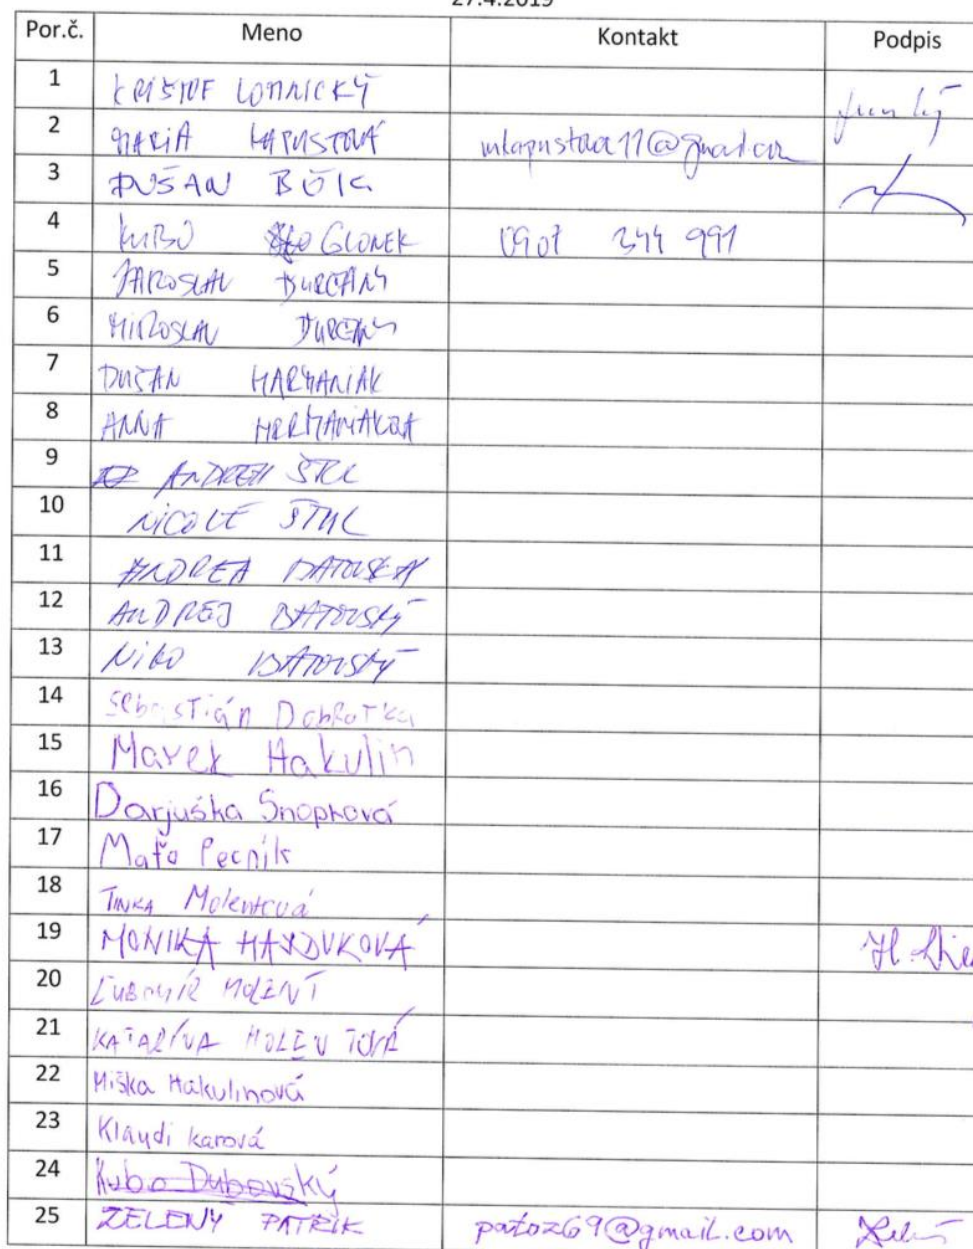 27.4.2019
Por.č. Meno Kontakt Podpis
1 KRIŠTOF LOMNICKÝ
2 MARIA KAPUSTOVÁ mkapustova11@gmail.com
3 DUŠAN BÚIK
4 KUBO GLONEK 0907 344 991
5 JAROSLAV ĎURČANÝ
6 MIROSLAV
7 DUŠAN HARMANIAK
8 ANNA HARMANIAKOVA
9 ANDREJ ŠTUL
10 NICOLE ŠTUL
11 ANDREA BATOVSKA
12 ANDREJ BATOVSKÝ
13 NIKO BATOVSKÝ
14 Sebastián DobRoTka
15 Marek Hakulin
16 Darjuška Snopková
17 Maťo Pecník
18 TINKA Molentová
19 MONIKA HANDUKOVÁ
20 ĽUBOMÍR MOLENT
21 KATARÍNA MOLENTOVÁ
22 Miška Hakulinová
23 Klaudi karová
24 Kubo Dubovský
25 ZELENÝ PATRIK patoz69@gmail.com